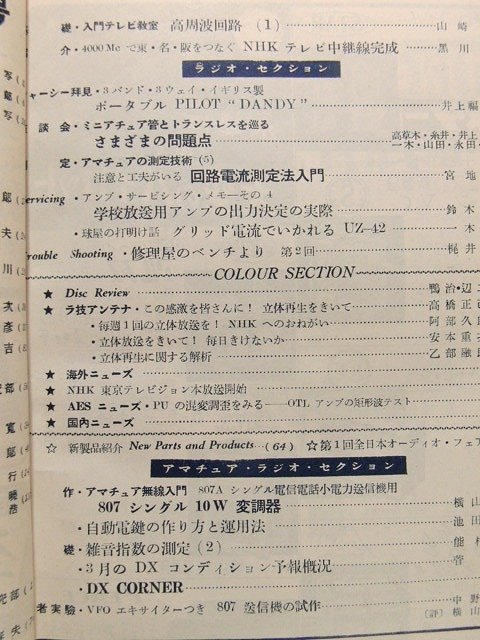 礎・入門テレビ教室 高周波回路 (1) 山崎
介・4000 Mc で東・名・阪をつなぐ NHK テレビ中継線完成 黒川
ラジオ・セクション
ャーシー拝見・3バンド・3ウェイ・イギリス製
ポータブル PILOT “DANDY” 井上福
談会・ミニアチュア管とトランスレスを巡る
さまざまの問題点 高草木・糸井・井上
一木・山田・永田
定・アマチュアの測定技術 (5)
注意と工夫がいる 回路電流測定法入門 宮地
Servicing・アンプ・サービシング・メモ―その4
学校放送用アンプの出力決定の実際 鈴木
・球屋の打明け話 グリッド電流でいかれる UZ-42 一木
Trouble Shooting・修理屋のベンチより 第2回 梶井
COLOUR SECTION
★ Disc Review 鴨治・辺
★ ラ技アンテナ・この感激を皆さんに! 立体再生をきいて 高橋正
・毎週1回の立体放送を! NHK へのおねがい 阿部久
・立体放送をきいて! 毎日きけないか 安本重
・立体再生に関する解析 乙部融
★ 海外ニューズ
★ NHK 東京テレビジョン本放送開始
★ AES ニューズ・PU の混変調歪をみる――OTL アンプの矩形波テスト
★ 国内ニューズ
☆ 新製品紹介 New Parts and Products…(64) ☆第1回全日本オーディオ・フェア
アマチュア・ラジオ・セクション
作・アマチュア無線入門 807A シングル電信電話小電力送信機用
807 シングル 10W 変調器 横山
・自動電鍵の作り方と運用法 池田
礎・雑音指数の測定 (2) 能
・3月の DX コンディション予報概況 菅
・DX CORNER
者実験・VFO エキサイターつき 807 送信機の試作 中野
〔評〕横山